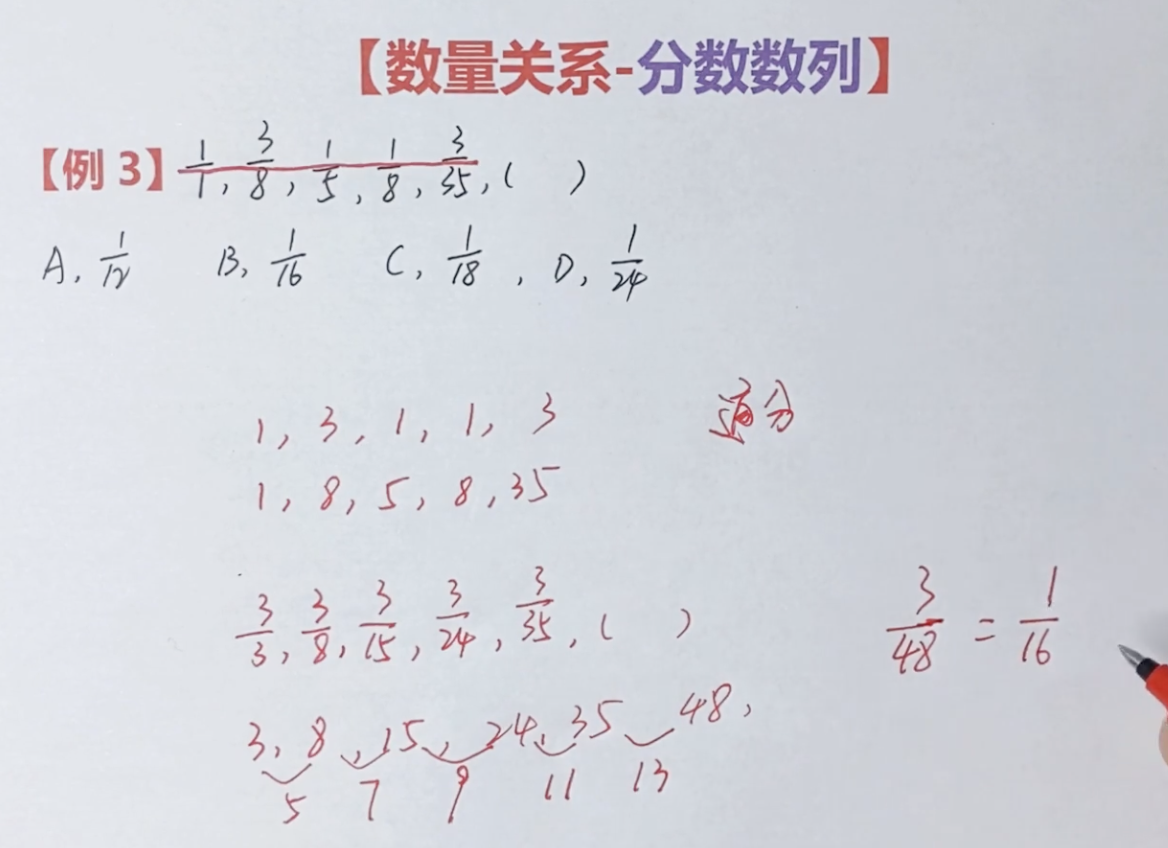 【数量关系-分数数列】
【例 3】 1/1, 3/8, 1/5, 1/8, 3/35, ( )
A, 1/12 B, 1/16 C, 1/18 , D, 1/24
1, 3, 1, 1, 3 通分
1, 8, 5, 8, 35
3/3, 3/8, 3/15, 3/24, 3/35, ( ) 3/48 = 1/16
3, 8, 15, 24, 35 48,
5 7 9 11 13